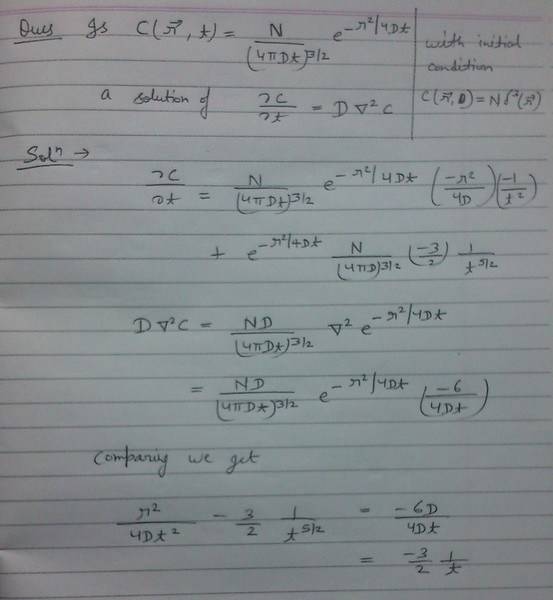 Ques Is C(r⃗, t) = N/(4πDt)^3/2 e^-r²/4Dt | with initial condition
a solution of ∂C/∂t = D ∇²C | C(r⃗, 0) = Nδ³(r⃗)
Solⁿ →
∂C/∂t = N/(4πDt)^3/2 e^-r²/4Dt (-r²/4D)(-1/t²)
+ e^-r²/4Dt N/(4πD)^3/2 (-3/2) 1/t^5/2
D∇²C = ND/(4πDt)^3/2 ∇² e^-r²/4Dt
= ND/(4πDt)^3/2 e^-r²/4Dt (-6/4Dt)
Comparing we get
r²/4Dt² - 3/2 1/t^5/2 = -6D/4Dt
= -3/2 1/t